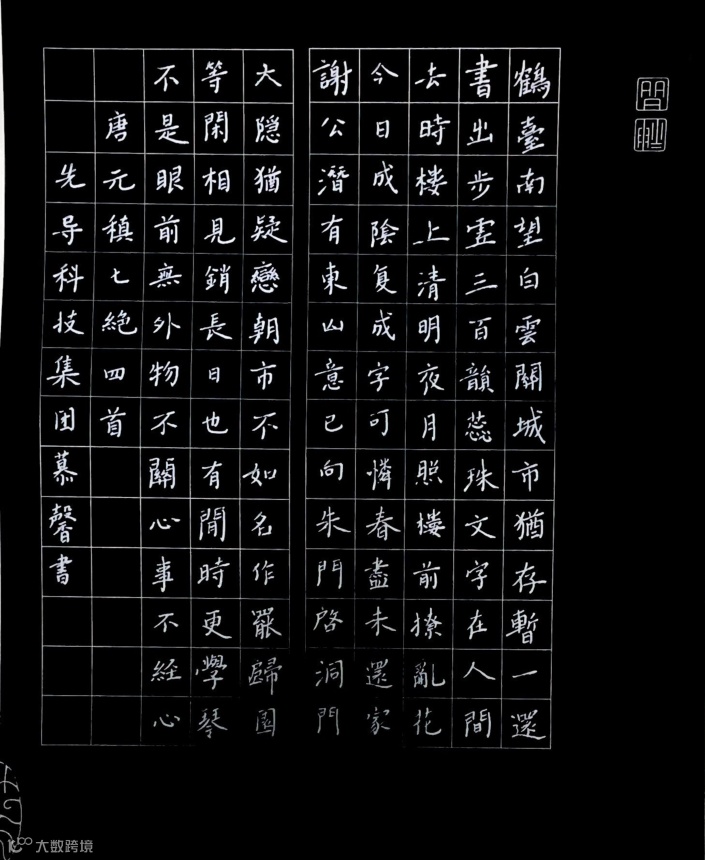 鶴臺南望白雲關城市猶存暫一還
書出步虛三百韻蕊珠文字在人間
去時樓上清明夜月照樓前撩亂花
今日成陰复成字可憐春盡未還家
謝公潛有東山意已向朱門啓洞門
大隱猶疑戀朝市不如名作罷歸園
等閑相見銷長日也有閒時更學琴
不是眼前無外物不關心事不経心
唐元稹七絕四首
先导科技集团慕馨書
大数跨境